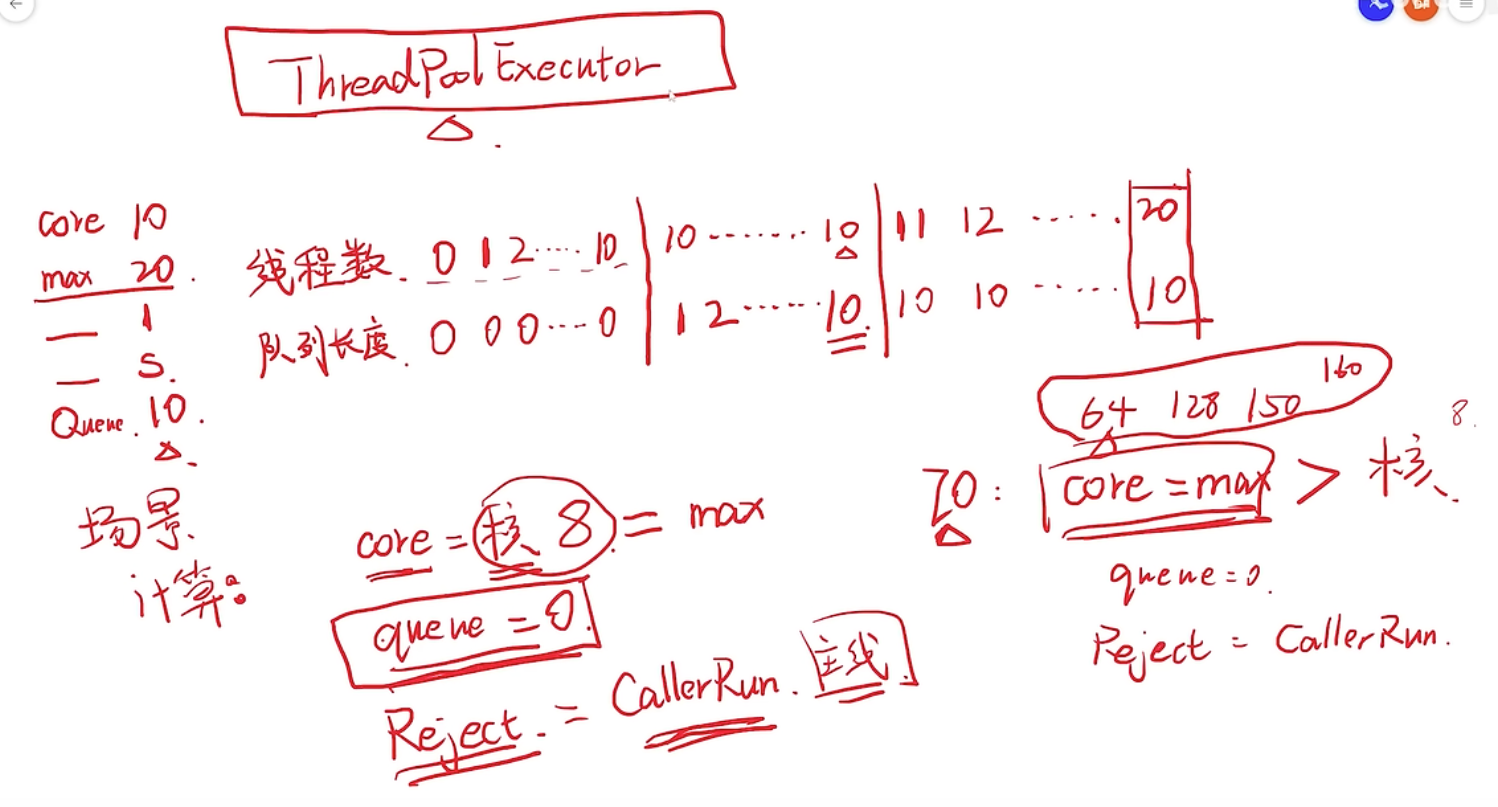 ThreadPoolExecutor
core 10
max 20.
— 1
— 5.
Queue. 10.
线程数. 0 1 2 ······ 10 | 10 ········ 10 | 11 12 ······ 20
队列长度. 0 0 0 ···· 0 | 1 2 ······ 10. | 10 10 ······ 10
场景.
计算:
core = 核 8 = max
queue = 0.
Reject. = CallerRun. 主线.
64 128 150 160
8.
IO: core = max > 核.
queue = 0.
Reject = CallerRun.